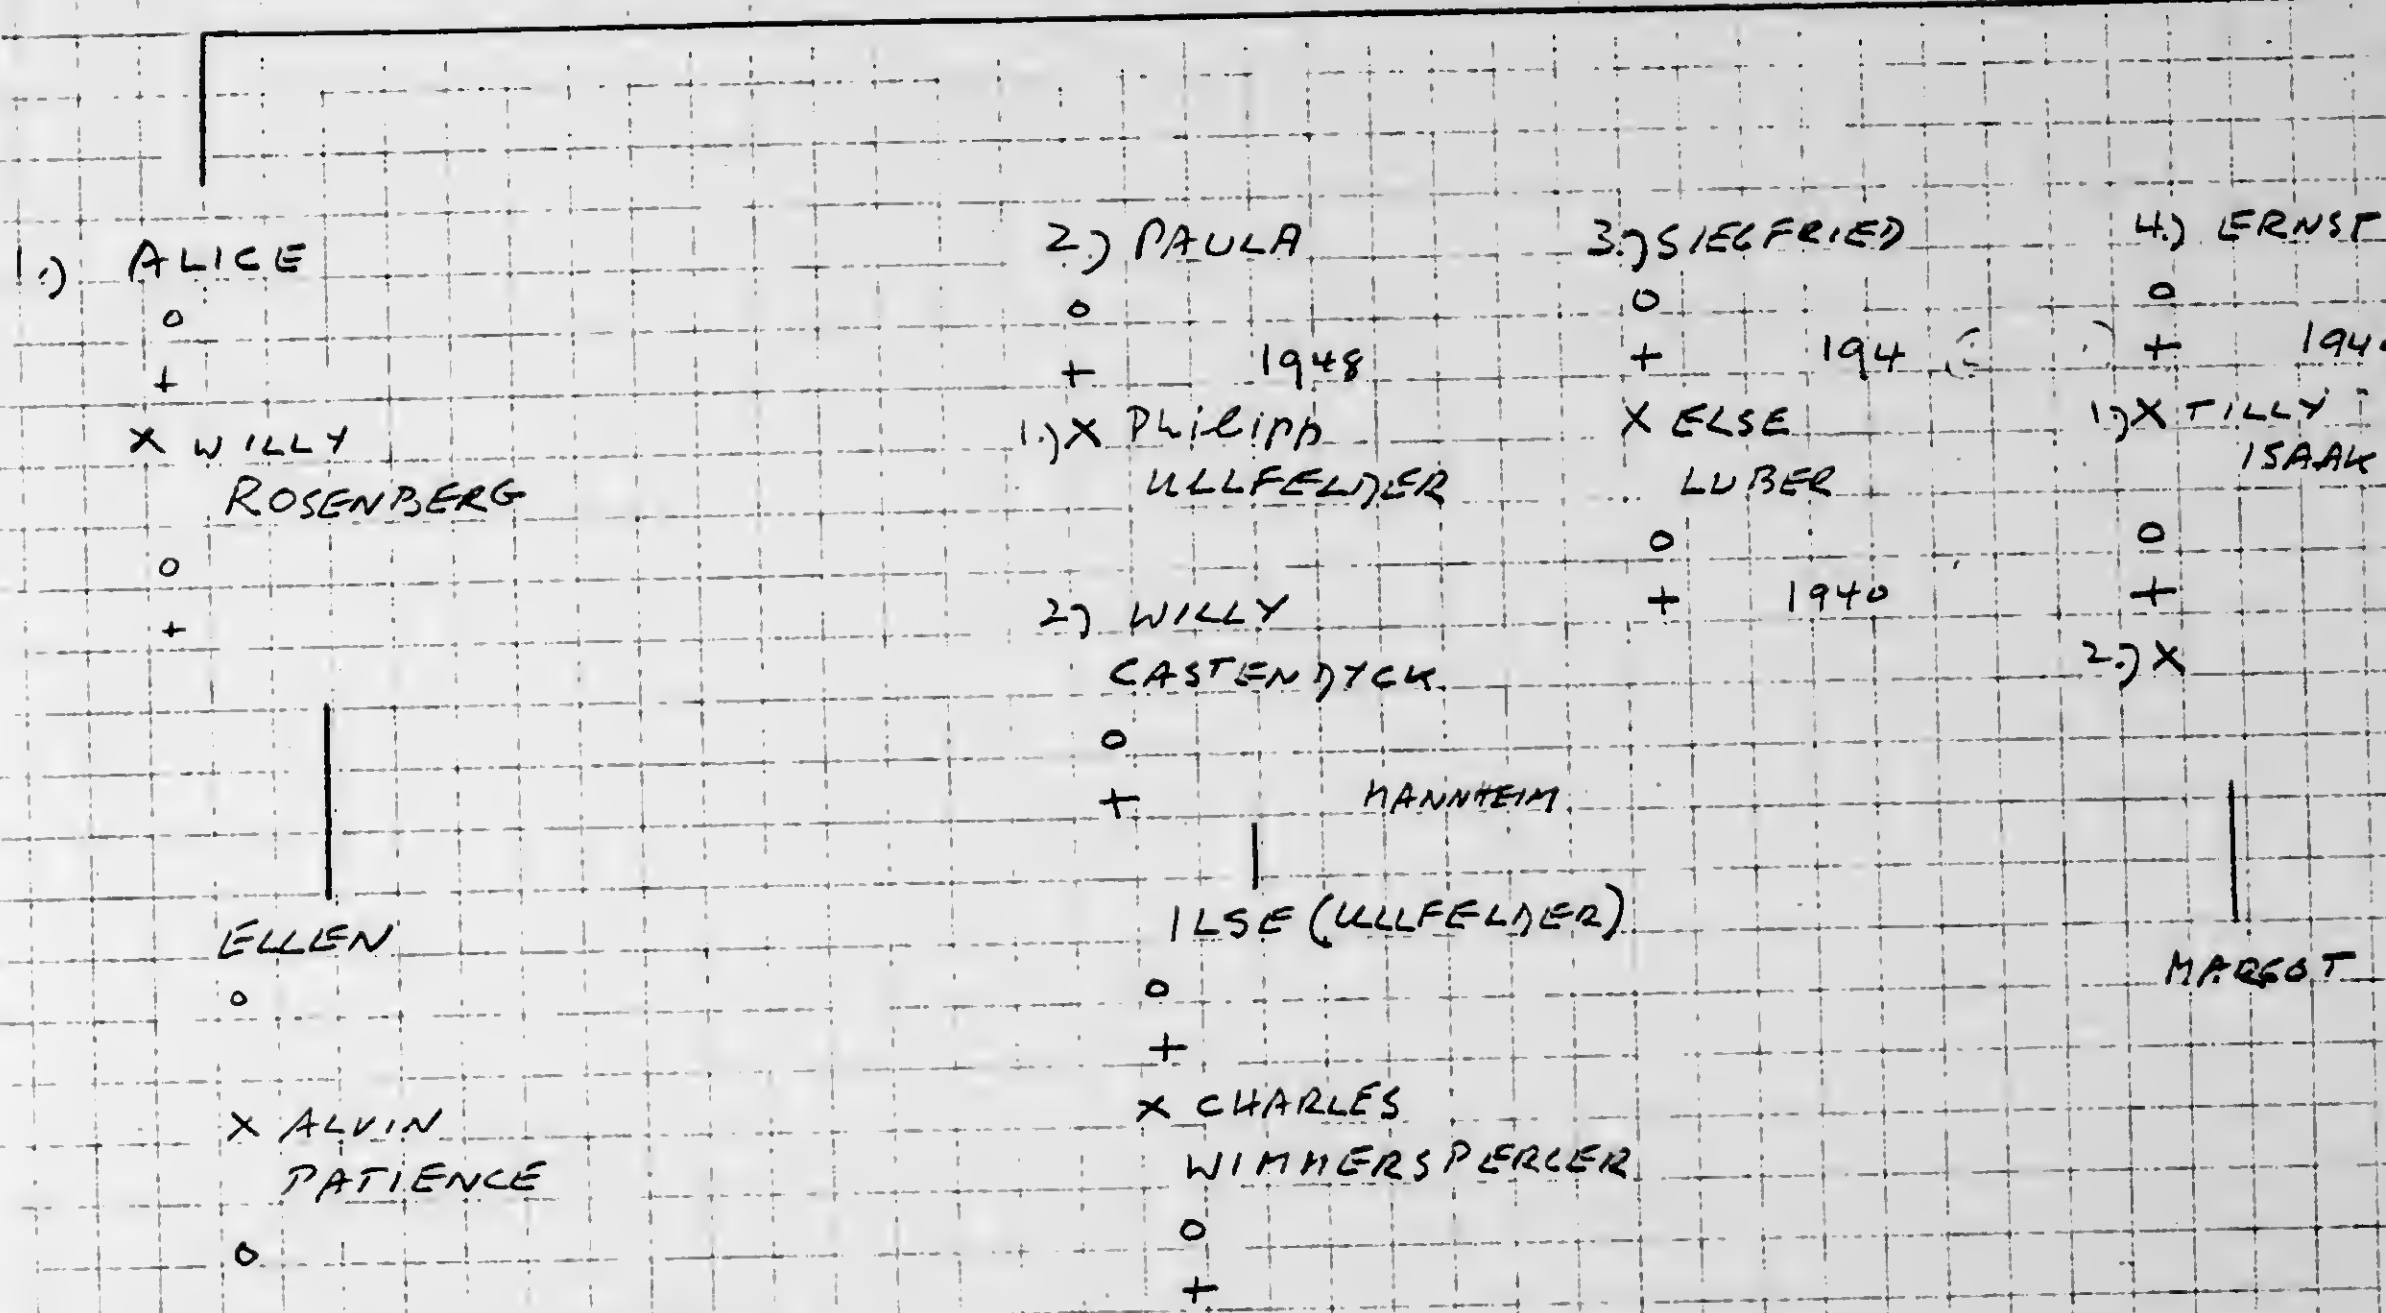 1.) ALICE
o
+
X WILLY
ROSENBERG
o
+
ELLEN
o
X ALVIN
PATIENCE
o
2.) PAULA
o
+ 1948
1.) X Philipp
ULLFELDER
2.) WILLY
CASTENDYCK
o
+ MANNHEIM
ILSE (ULLFELDER)
o
+
X CHARLES
WIMMERSPERGER
o
+
3.) SIEGFRIED
o
+ 194 ( )
X ELSE
LUBER
o
+ 1940
4.) ERNST
o
+ 194
1.) X TILLY
ISAAK
o
+
2.) X
MARGOT